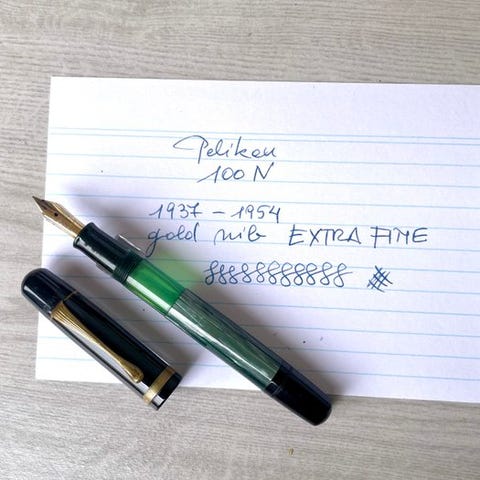 Pelikan
100 N
1937 - 1954
gold nib EXTRA FINE